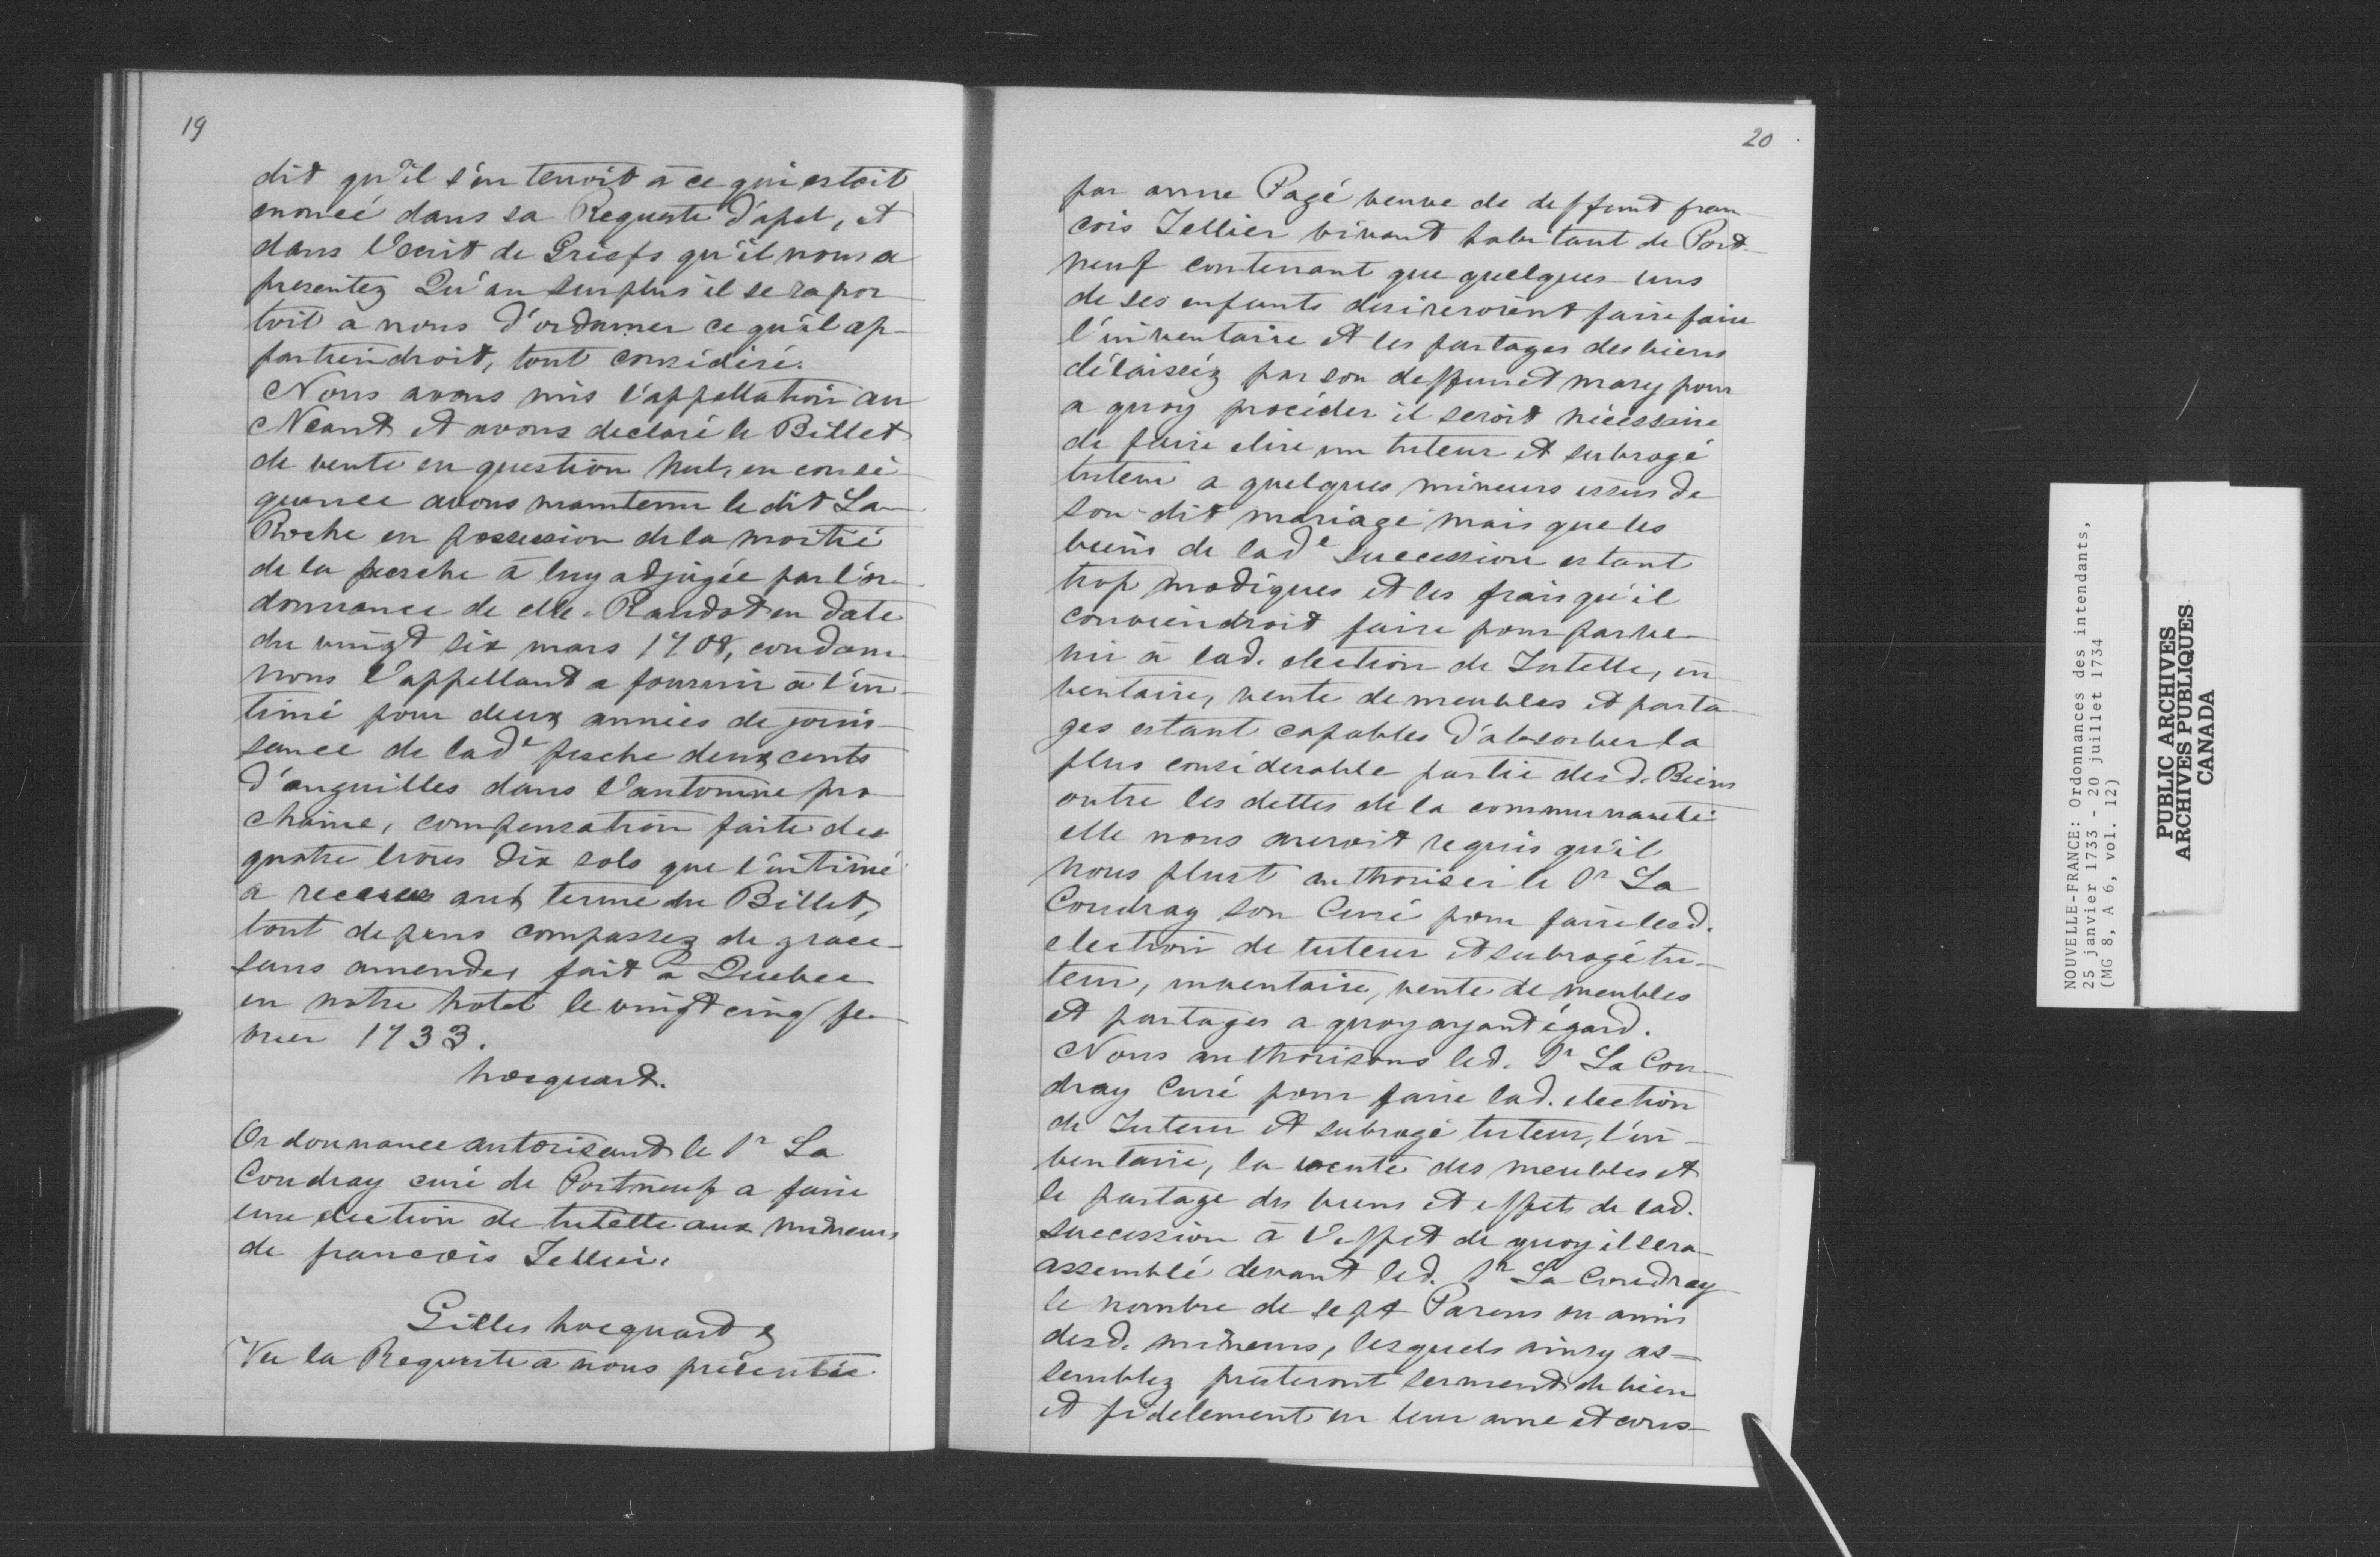 19
dit qu'il s'en tenoit à ce qui estoit
enoncé dans sa Requeste d'apel, et
dans l'ecrit de Griefs qu'il nous a
presentez Qu'au surplus il se rapor
toit à nous d'ordonner ce qu'il ap-
partiendroit, tout considéré.
Nous avons mis l'appellation au
Néant et avons declaré le Billet
de vente en question nul, en consé
quence avons maintenu le dit La
Roche en possession de la moitié
de la pesche à luy adjugée par l'or
donnance de Mr. Raudot en date
du vingt six mars 1708, condam
nons l'appellant a fournir à l'in-
timé pour deux années de jouis-
sance de lade pesche deux cents
d'anguilles dans l'automne pro-
chaine, compensation faite des
quatre livres dix sols que l'intimé
a receues aux terme du Billet,
tout depens compassez de grace
sans amende, fait à Quebec
en notre hotel le vingt cinq fe-
vrier 1733.
hocquart.
Ordonnance autorisant le Sr La
Coudray curé de Portneuf a faire
une election de tutelle aux mineurs
de francois Tellier.
Gilles hocquart &
Vu la Requeste à nous présentée
20
par anne Pagé veuve de deffunt fran
cois Tellier vivant habitant de Port-
neuf contenant que quelques-uns
de ses enfants desireroient faire faire
l'inventaire et les partages des biens
délaissés par son deffunct mary pour
a quoy procéder il seroit nécessaire
de faire elire un tuteur et subrogé
tuteur a quelques mineurs issus de
son-dit mariage mais que les
biens de lade succession estant
trop modiques et les frais qu'il
conviendroit faire pour parve-
nir à lad. election de Tutelle, in-
ventaire, vente de meubles et parta-
ges estant capables d'absorber la
plus considerable partie desd. Biens
outre les dettes de la communauté
elle nous auroit requis qu'il
nous plust authoriser le Sr La
Coudray son Curé pour faire lesd.
election de tuteur et subrogé tu-
teur, inventaire, vente de meubles
et partages a quoy ayant égard.
Nous authorisons led. Sr La Cou-
dray Curé pour faire lad. election
de Tuteur et subrogé tuteur, l'in-
ventaire, la vente des meubles et
le partage des biens et effets de lad.
succession à l'effet de quoy il sera
assemblé devant led. Sr La Coudray
le nombre de sept Parens ou amis
desd. mineurs, lesquels ainsy as-
semblez presteront serment de bien
et fidelement en leur ame et cons-
NOUVELLE-FRANCE: Ordonnances des intendants,
25 janvier 1733 - 20 juillet 1734
(MG 8, A 6, vol. 12)
PUBLIC ARCHIVES
ARCHIVES PUBLIQUES
CANADA